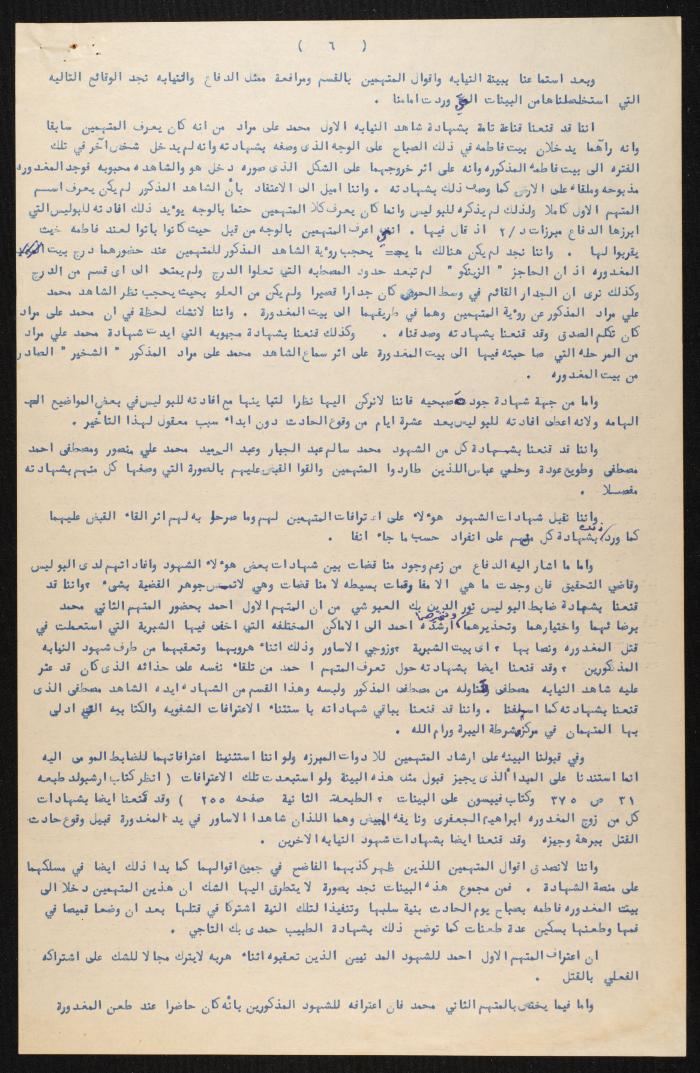 ( ٦ )
وبعد استماعنا ببينة النيابه واقوال المتهمين بالقسم ومرافعة ممثل الدفاع والنيابه نجد الوقائع التاليه
التي استخلصناها من البينات التي وردت امامنا .
اننا قد قنعنا قناعة تامة بشهادة شاهد النيابه الاول محمد على مراد من انه كان يعرف المتهمين سابقا
وانه رآهما يدخلان بيت فاطمه في ذلك الصباح على الوجه الذى وصفه بشهادته وانه لم يدخل شخص آخر في تلك
الفتره الى بيت فاطمه المذكوره وانه على اثر خروجهما على الشكل الذى صوره دخل هو والشاهده محبوبه فوجد المغدوره
مذبوحه وملقاه على الارض كما وصف ذلك بشهادته . واننا اميل الى الاعتقاد بأن الشاهد المذكور لم يكن يعرف اسم
المتهم الاول كاملا ولذلك لم يذكره للبوليس وانما كان يعرف كلا المتهمين حتما بالوجه يؤيد ذلك افادته للبوليس التي
ابرزها الدفاع مبرزات د/٢ اذ قال فيها . انني اعرف المتهمين بالوجه من قبل حيث كانوا يأتوا لعند فاطمه حيث
يقربوا لها . واننا نجد لم يكن هنالك ما يحجب رؤية الشاهد المذكور للمتهمين عند حضورهما درج بيت
المغدوره اذ ان الحاجز " الزينكو " لم تبعد حدود المصطبه التي تعلوا الدرج ولم يمتد الى اى قسم من الدرج
وكذلك نرى ان الجدار القائم في وسط الحوش كان جدارا قصيرا ولم يكن من العلو بحيث يحجب نظر الشاهد محمد
علي مراد المذكور عن رؤية المتهمين وهما في طريقهما الى بيت المغدورة . واننا لانشك لحظة في ان محمد على مراد
كان تكلم الصدق وقد قنعنا بشهادته وصدقناه . وكذلك قنعنا بشهادة محبوبه التي ايدت شهادة محمد علي مراد
من المرحله التي صاحبته فيها الى بيت المغدورة على اثر سماع الشاهد محمد على مراد المذكور " الشخير " الصادر
من بيت المغدوره .
واما من جهة شهادة جوده صبحيه فاننا لانركن اليها نظرا لتباينها مع افادته للبوليس في بعض المواضيع
الهامه ولانه اعطى افادته للبوليس بعد عشرة ايام من وقوع الحادث دون ابداء سبب معقول لهذا التأخير .
واننا قد قنعنا بشهادة كل من الشهود محمد سالم عبد الجبار وعبد الحميد محمد علي منصور ومصطفى احمد
مصطفى وطويح عودة وحلمي عباس اللذين طاردوا المتهمين والقوا القبض عليهم بالصورة التي وصفها كل منهم بشهادته
مفصلا .
واننا نقبل شهادات الشهود هوءلاء على اعترافات المتهمين لهم وما صرحوا به لهم اثر القاء القبض عليهما
كما ورد بشهادة كل منهم على انفراد حسب ما جاء انفا .
واما ما اشار اليه الدفاع من زعم وجود مناقضات بين شهادات بعض هوءلاء الشهود وافاداتهم لدى البوليس
وقاضي التحقيق فان وجدت ما هي الا مفارقات بسيطه لا مناقضات وهي لاتمس جوهر القضية بشىء ? واننا قد
قنعنا بشهادة ضابط البوليس نور الدين بك العبوشي من ان المتهم الاول احمد بحضور المتهم الثاني محمد
برضائهما واختيارهما وتحذيرهما ارشده احمد الى الاماكن المختلفه التي اخفى فيها الشبرية التي استعملت في
قتل المغدوره ونصابها ? اى بيت الشبرية ? وزوجي الاساور وذلك اثناء هروبهما وتعقبهما من طرف شهود النيابه
المذكورين ? وقد قنعنا ايضا بشهادته حول تعرف المتهم احمد من تلقاء نفسه على حذائه الذى كان قد عثر
عليه شاهد النيابه مصطفى وتناوله من مصطفى المذكور ولبسه وهذا القسم من الشهادة ايده الشاهد مصطفى الذى
قنعنا بشهادته كما اسلفنا . واننا قد قنعنا بباقي شهاداته باستثناء الاعترافات الشفويه والكتابيه التي ادلى
بها المتهمان في مركز شرطة البيرة ورام الله .
وفي قبولنا البينه على ارشاد المتهمين للادوات المبرزه ولو اننا استثنينا اعترافاتهما للضابط المومى اليه
انما استندنا على المبدأ الذى يجيز قبول مثل هذه البينة ولو استبعدت تلك الاعترافات ( انظر كتاب ارشبولد طبعه
٣١ ص ٣٧٥ وكتاب فيبسون على البينات ? الطبعة الثانية صفحه ٢٥٥ ) وقد قنعنا ايضا بشهادات
كل من زوج المغدوره ابراهيم الجعفرى ونايفه البيض وهما اللذان شاهدا الاساور في يد المغدورة قبيل وقوع حادث
القتل ببرهة وجيزه وقد قنعنا ايضا بشهادات شهود النيابه الاخرين .
واننا لانصدق اقوال المتهمين اللذين ظهر كذبهما الفاضح في جميع اقوالهما كما بدا ذلك ايضا في مسلكهما
على منصة الشهادة . فمن مجموع هذه البينات نجد بصورة لايتطرق اليها الشك ان هذين المتهمين دخلا الى
بيت المغدوره فاطمه بصباح يوم الحادث بنية سلبها وتنفيذا لتلك النية اشتركا في قتلها بعد ان وضعا قميصا في
فمها وطعنها بسكين عدة طعنات كما توضح ذلك بشهادة الطبيب حمدى بك التاجي .
ان اعتراف المتهم الاول احمد للشهود المدنيين الذين تعقبوه اثناء هربه لايترك مجالا للشك على اشتراكه
الفعلي بالقتل .
واما فيما يختص بالمتهم الثاني محمد فان اعترافه للشهود المذكورين بأنه كان حاضرا عند طعن المغدورة